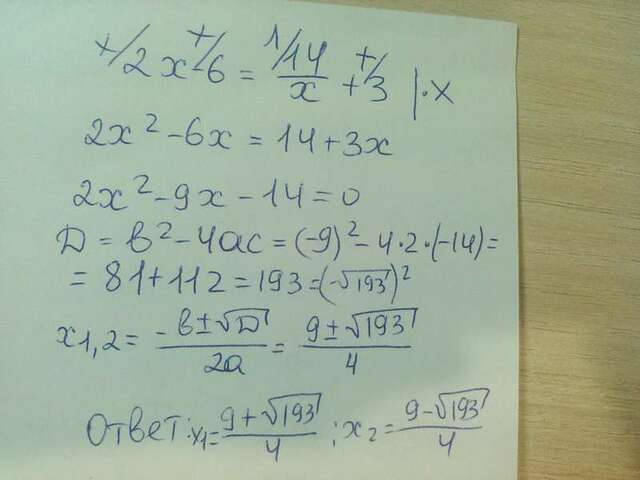 x/2x x/-6 = 1/14/x x/+3 |·x
2x² - 6x = 14 + 3x
2x² - 9x - 14 = 0
D = b² - 4ac = (-9)² - 4·2·(-14) =
= 81 + 112 = 193 = (√193)²
x1,2 = (-b ± √D)/2a = (9 ± √193)/4
Ответ: x1 = (9 + √193)/4 ; x2 = (9 - √193)/4